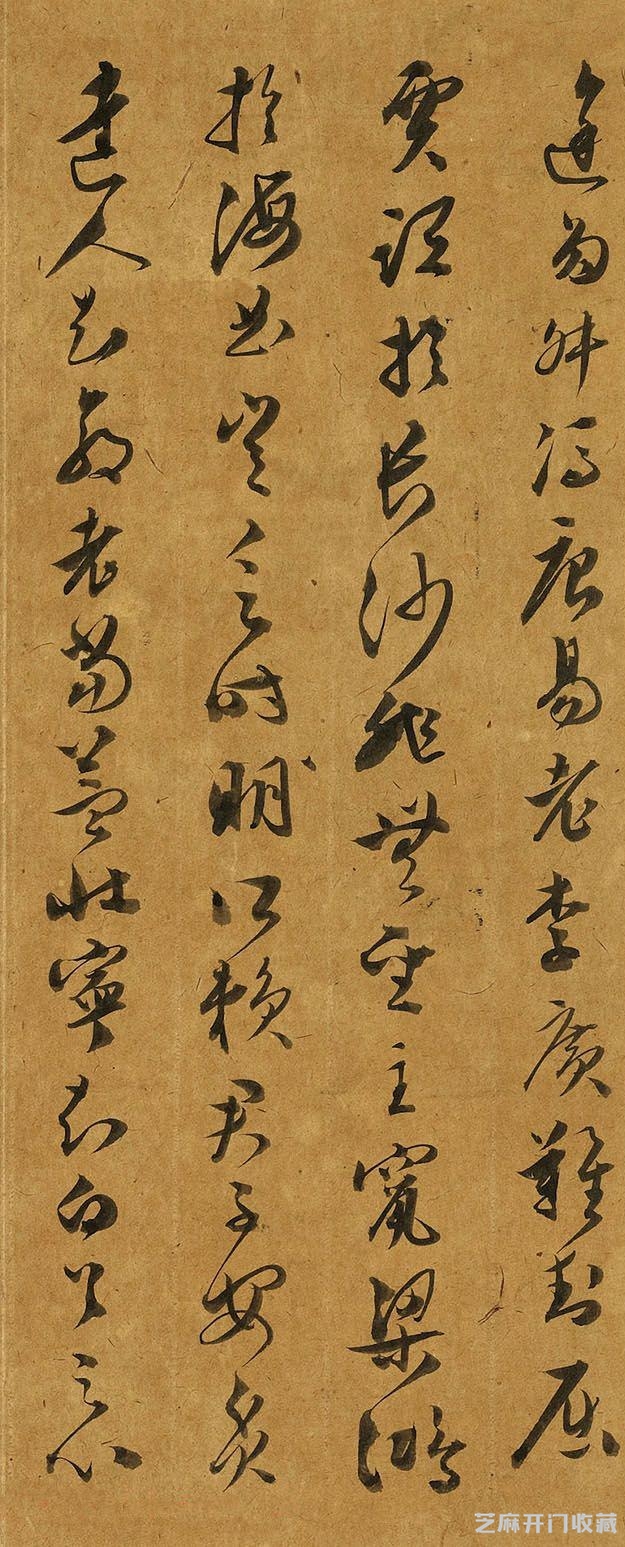 途多舛馮唐易老李廣難封屈
賈誼於長沙非無聖主竄梁鴻
於海曲豈乏時明所賴君子安貧
達人知命老當益壯寧知白首之心
芝麻开门收藏